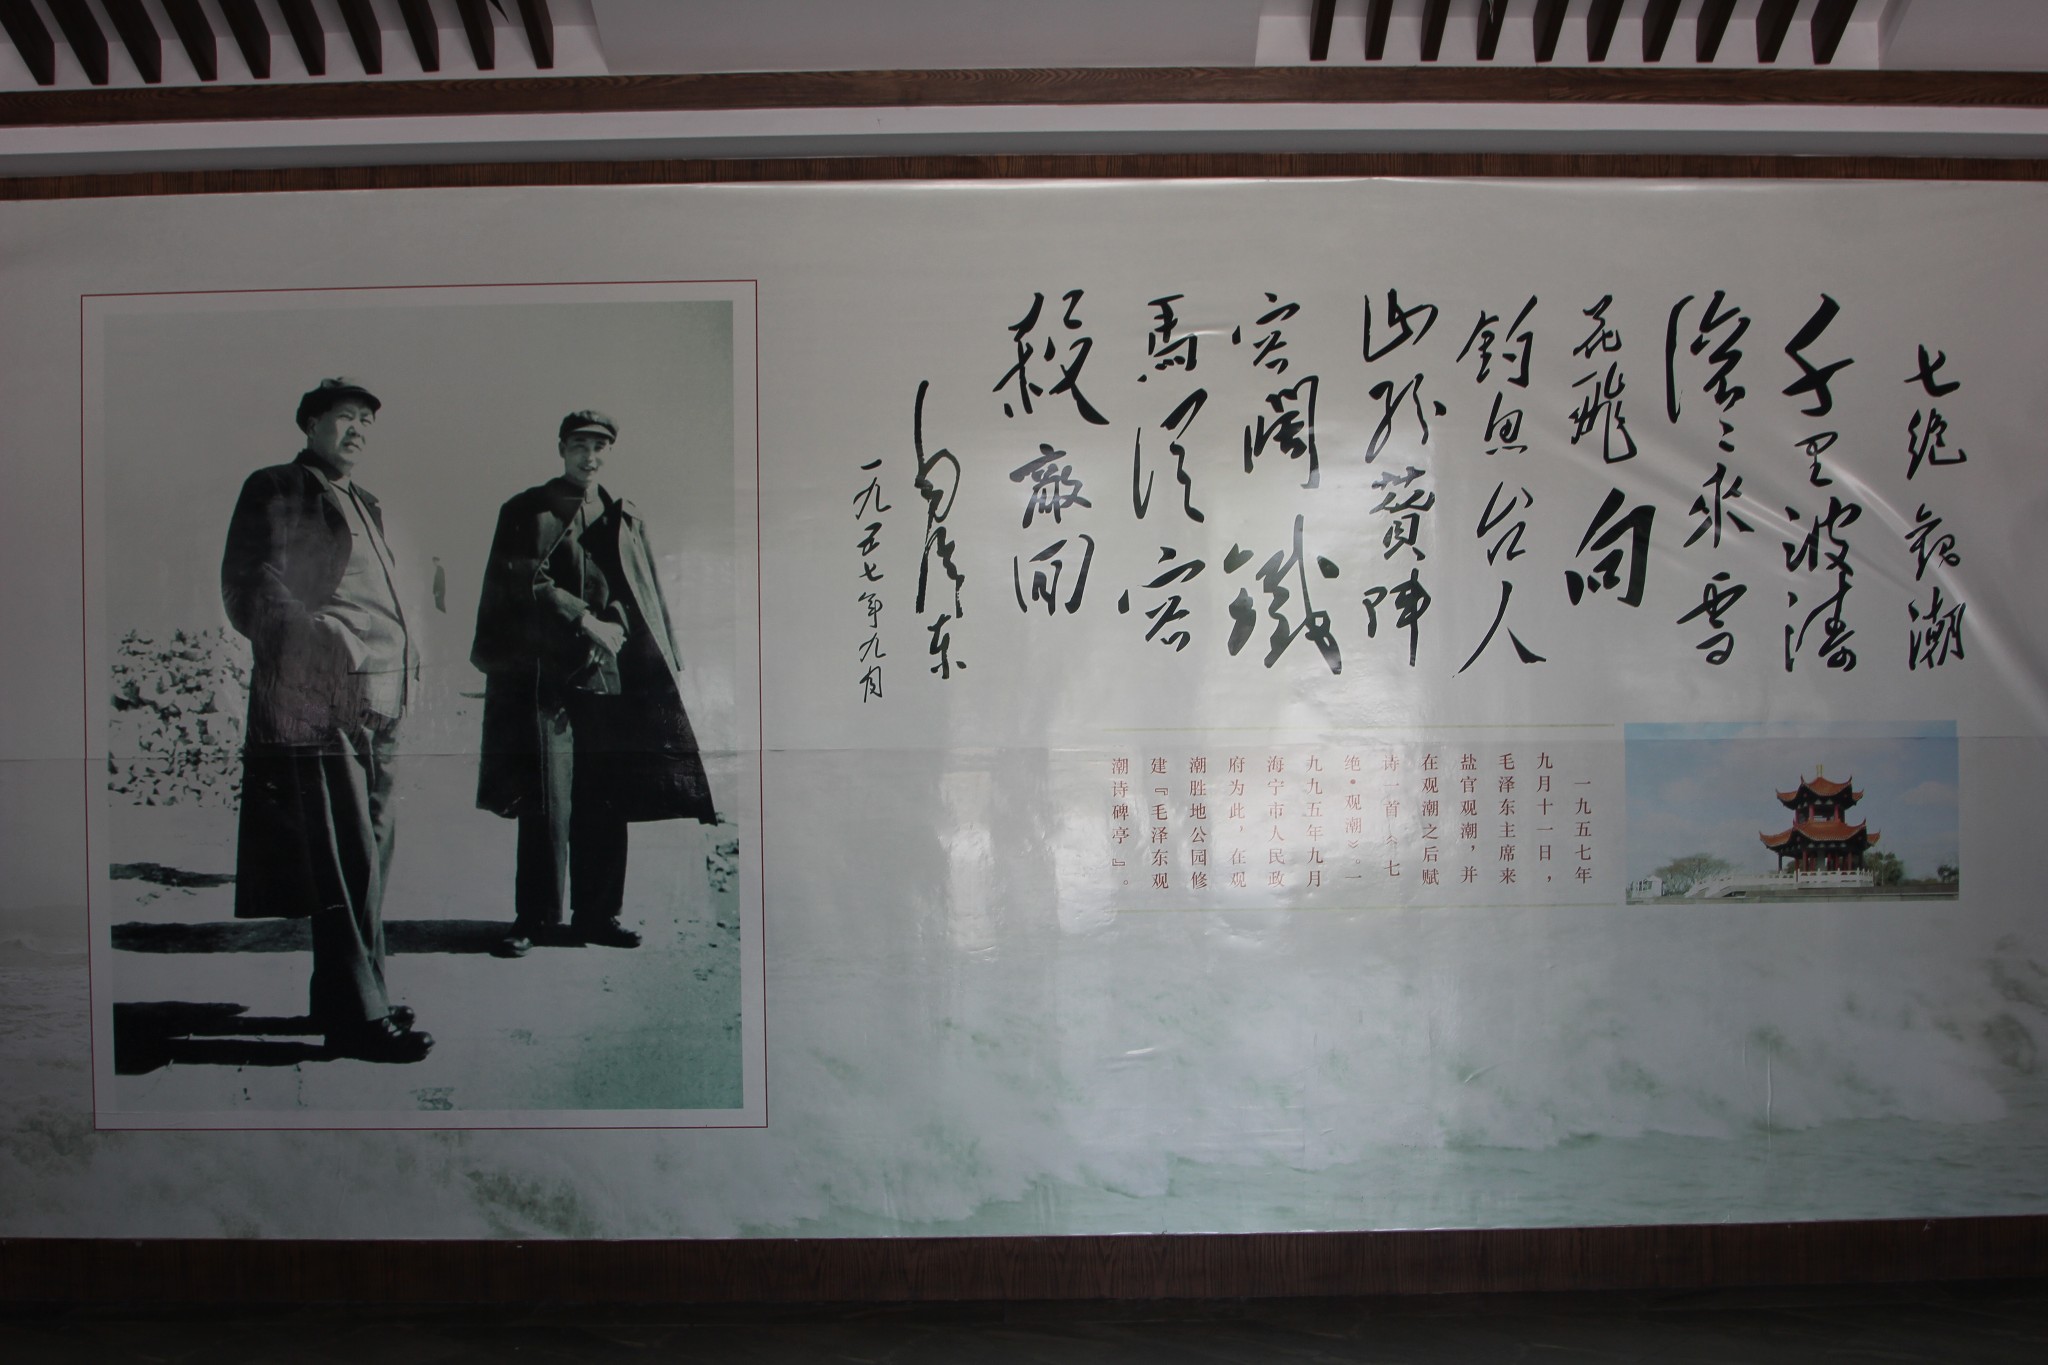 七絕 觀潮
千里波濤
滚滚來雪
花飛向
釣魚台人
山紛贊陣
容闊鐵
馬從容
殺敵回
毛泽东
一九五七年九月
一九五七年
九月十一日，
毛泽东主席来
盐官观潮，并
在观潮之后赋
诗一首《七
绝·观潮》。一
九九五年九月
海宁市人民政
府为此，在观
潮胜地公园修
建『毛泽东观
潮诗碑亭』。